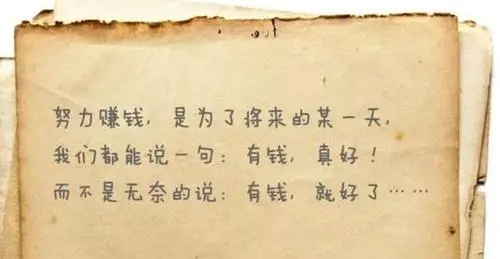 努力赚钱，是为了将来的某一天，
我们都能说一句：有钱，真好！
而不是无奈的说：有钱，就好了……